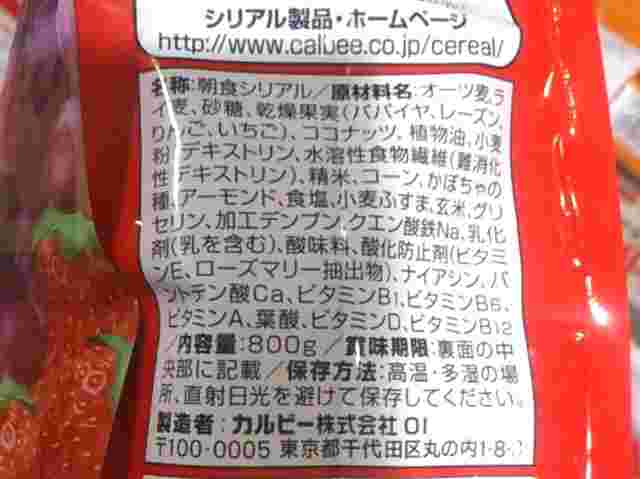 シリアル製品・ホームページ
http://www.calbee.co.jp/cereal/
名称:朝食シリアル/原材料名:オーツ麦、ラ
イ麦、砂糖、乾燥果実(パパイヤ、レーズン、
りんご、いちご)、ココナッツ、植物油、小麦
粉、デキストリン、水溶性食物繊維(難消化
性デキストリン)、精米、コーン、かぼちゃの
種、アーモンド、食塩、小麦ふすま、玄米、グリ
セリン、加工デンプン、クエン酸鉄Na、乳化
剤(乳を含む)、酸味料、酸化防止剤(ビタミ
ンE、ローズマリー抽出物)、ナイアシン、パ
ントテン酸Ca、ビタミンB1、ビタミンB6、
ビタミンA、葉酸、ビタミンD、ビタミンB12
/内容量:800g/賞味期限:裏面の中
央部に記載/保存方法:高温・多湿の場
所、直射日光を避けて保存してください。
製造者:カルビー株式会社 01
〒100-0005 東京都千代田区丸の内1-8-3